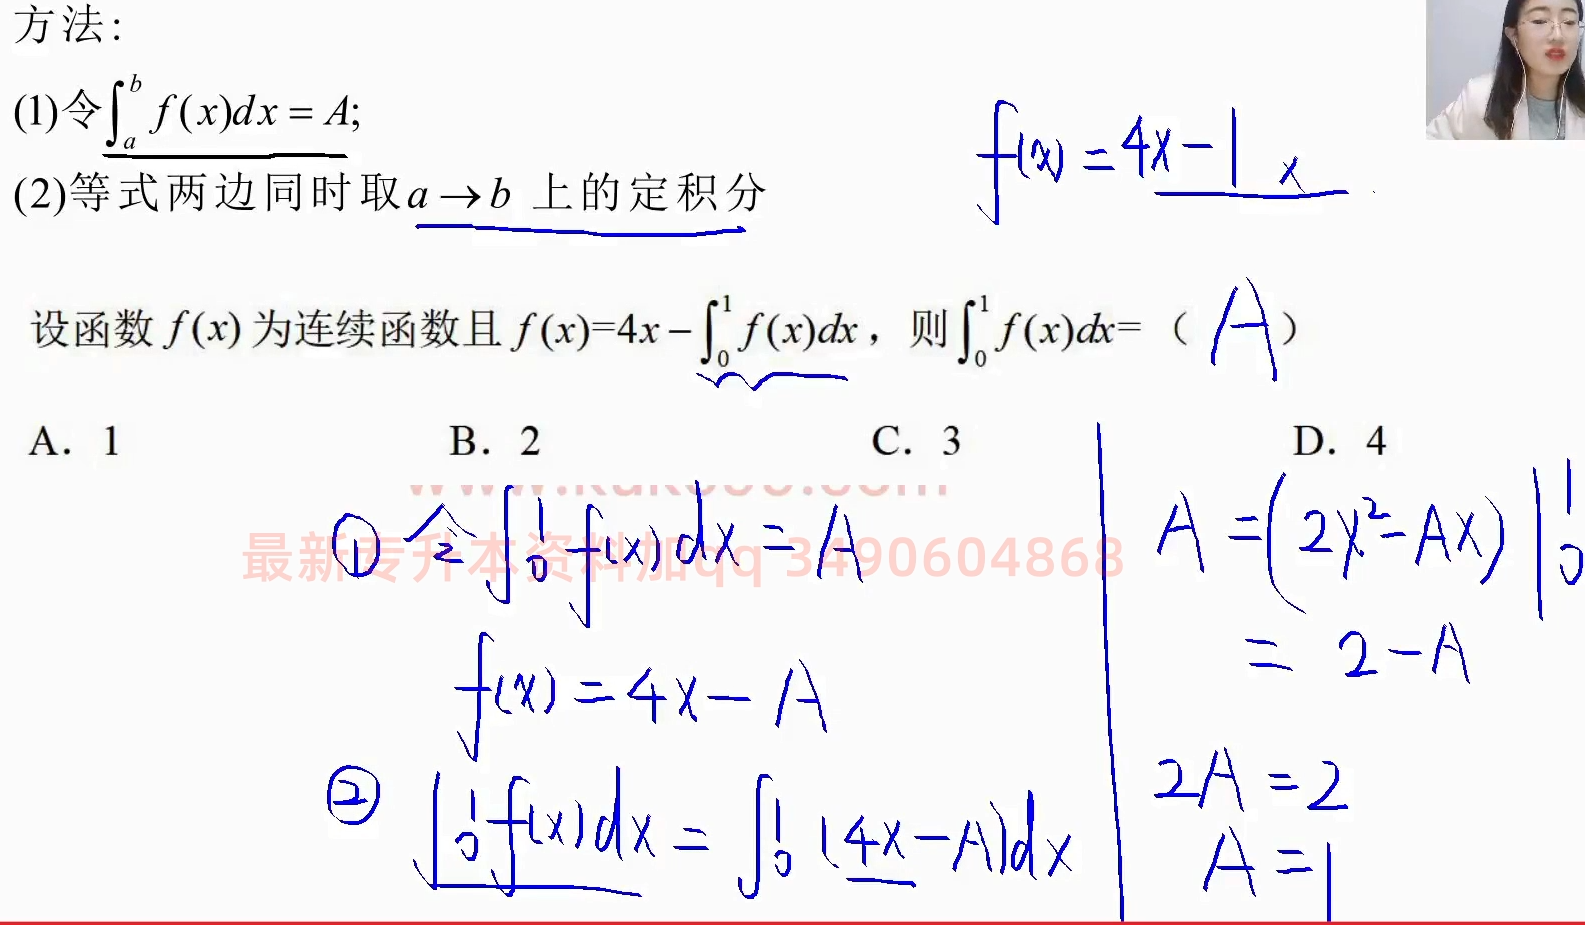 方法:
(1)令∫_a^b f(x)dx = A;
(2)等式两边同时取a→b 上的定积分
f(x) = 4x - 1 x
设函数 f(x) 为连续函数且 f(x)=4x-∫_0^1 f(x)dx，则∫_0^1 f(x)dx=（ A ）
A. 1 B. 2 C. 3 D. 4
最新专升本资料加qq 3490604868
① 令∫_0^1 f(x)dx = A
f(x) = 4x - A
② ∫_0^1 f(x)dx = ∫_0^1 (4x-A)dx
A = (2x²-Ax)|_0^1
= 2-A
2A = 2
A = 1